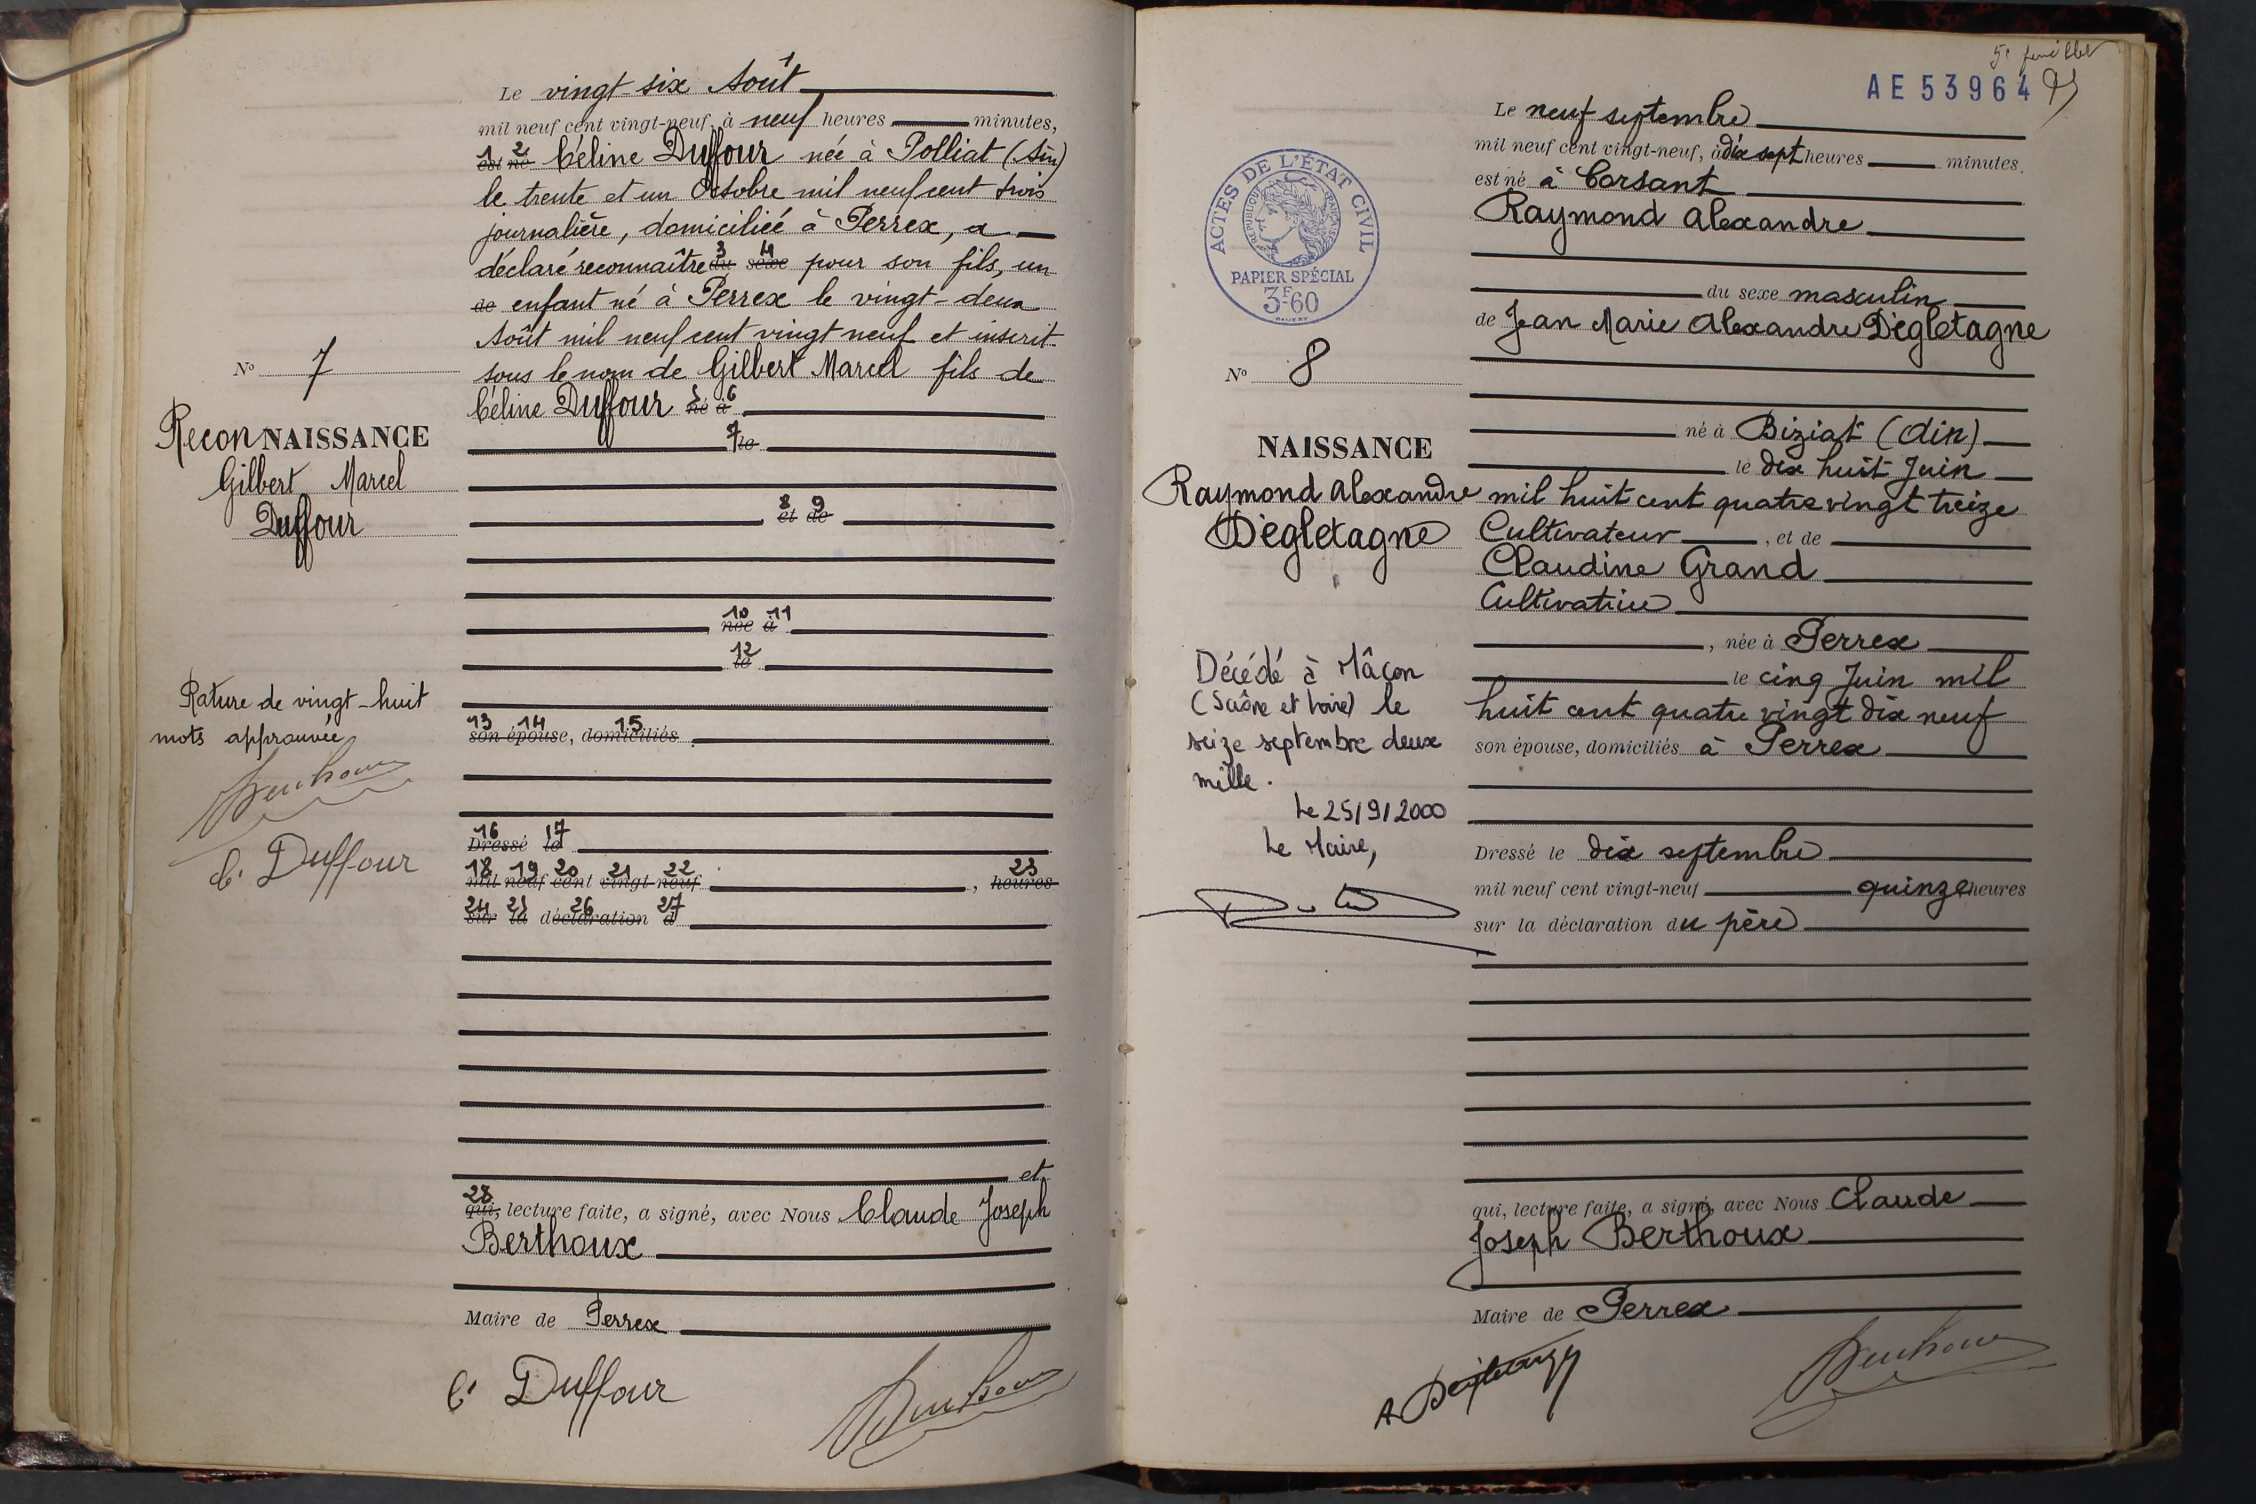 Le vingt-six Août
mil neuf cent vingt-neuf, à neuf heures minutes,
1 2
est né Céline Duffour née à Polliat (Ain)
le trente et un Octobre mil neuf cent trois
journalière, domiciliée à Perrex, a
3 4
déclaré reconnaître du sexe pour son fils, un
de enfant né à Perrex le vingt-deux
Août mil neuf cent vingt neuf et inscrit
sous le nom de Gilbert Marcel fils de
5 6
Céline Duffour né à
7
le
8 9
et de
10 11
née à
12
le
13 14 15
son épouse, domiciliés
16 17
Dressé le
18 19 20 21 22 23
mil neuf cent vingt-neuf, heures
24 25 26 27
sur la déclaration d
et
28
qui, lecture faite, a signé, avec Nous Claude Joseph
Berthoux
Maire de Perrex
C. Duffour
No 7
ReconNAISSANCE
Gilbert Marcel
Duffour
Rature de vingt-huit
mots approuvée
C. Duffour
5e feuillet
AE 53964
Le neuf septembre
mil neuf cent vingt-neuf, à dix sept heures minutes.
est né à Corsant
Raymond Alexandre
du sexe masculin
de Jean Marie Alexandre Dégletagne
né à Biziat (Ain)
le dix huit Juin
mil huit cent quatre vingt treize
Cultivateur, et de
Claudine Grand
Cultivatrice
, née à Perrex
le cinq Juin mil
huit cent quatre vingt dix neuf
son épouse, domiciliés à Perrex
Dressé le dix septembre
mil neuf cent vingt-neuf quinze heures
sur la déclaration du père
qui, lecture faite, a signé, avec Nous Claude
Joseph Berthoux
Maire de Perrex
ACTES DE L'ÉTAT CIVIL
RÉPUBLIQUE FRANÇAISE
PAPIER SPÉCIAL
3F60
No 8
NAISSANCE
Raymond Alexandre
Dégletagne
Décédé à Mâcon
(Saône et Loire) le
seize septembre deux
mille.
Le 25/9/2000
Le Maire,